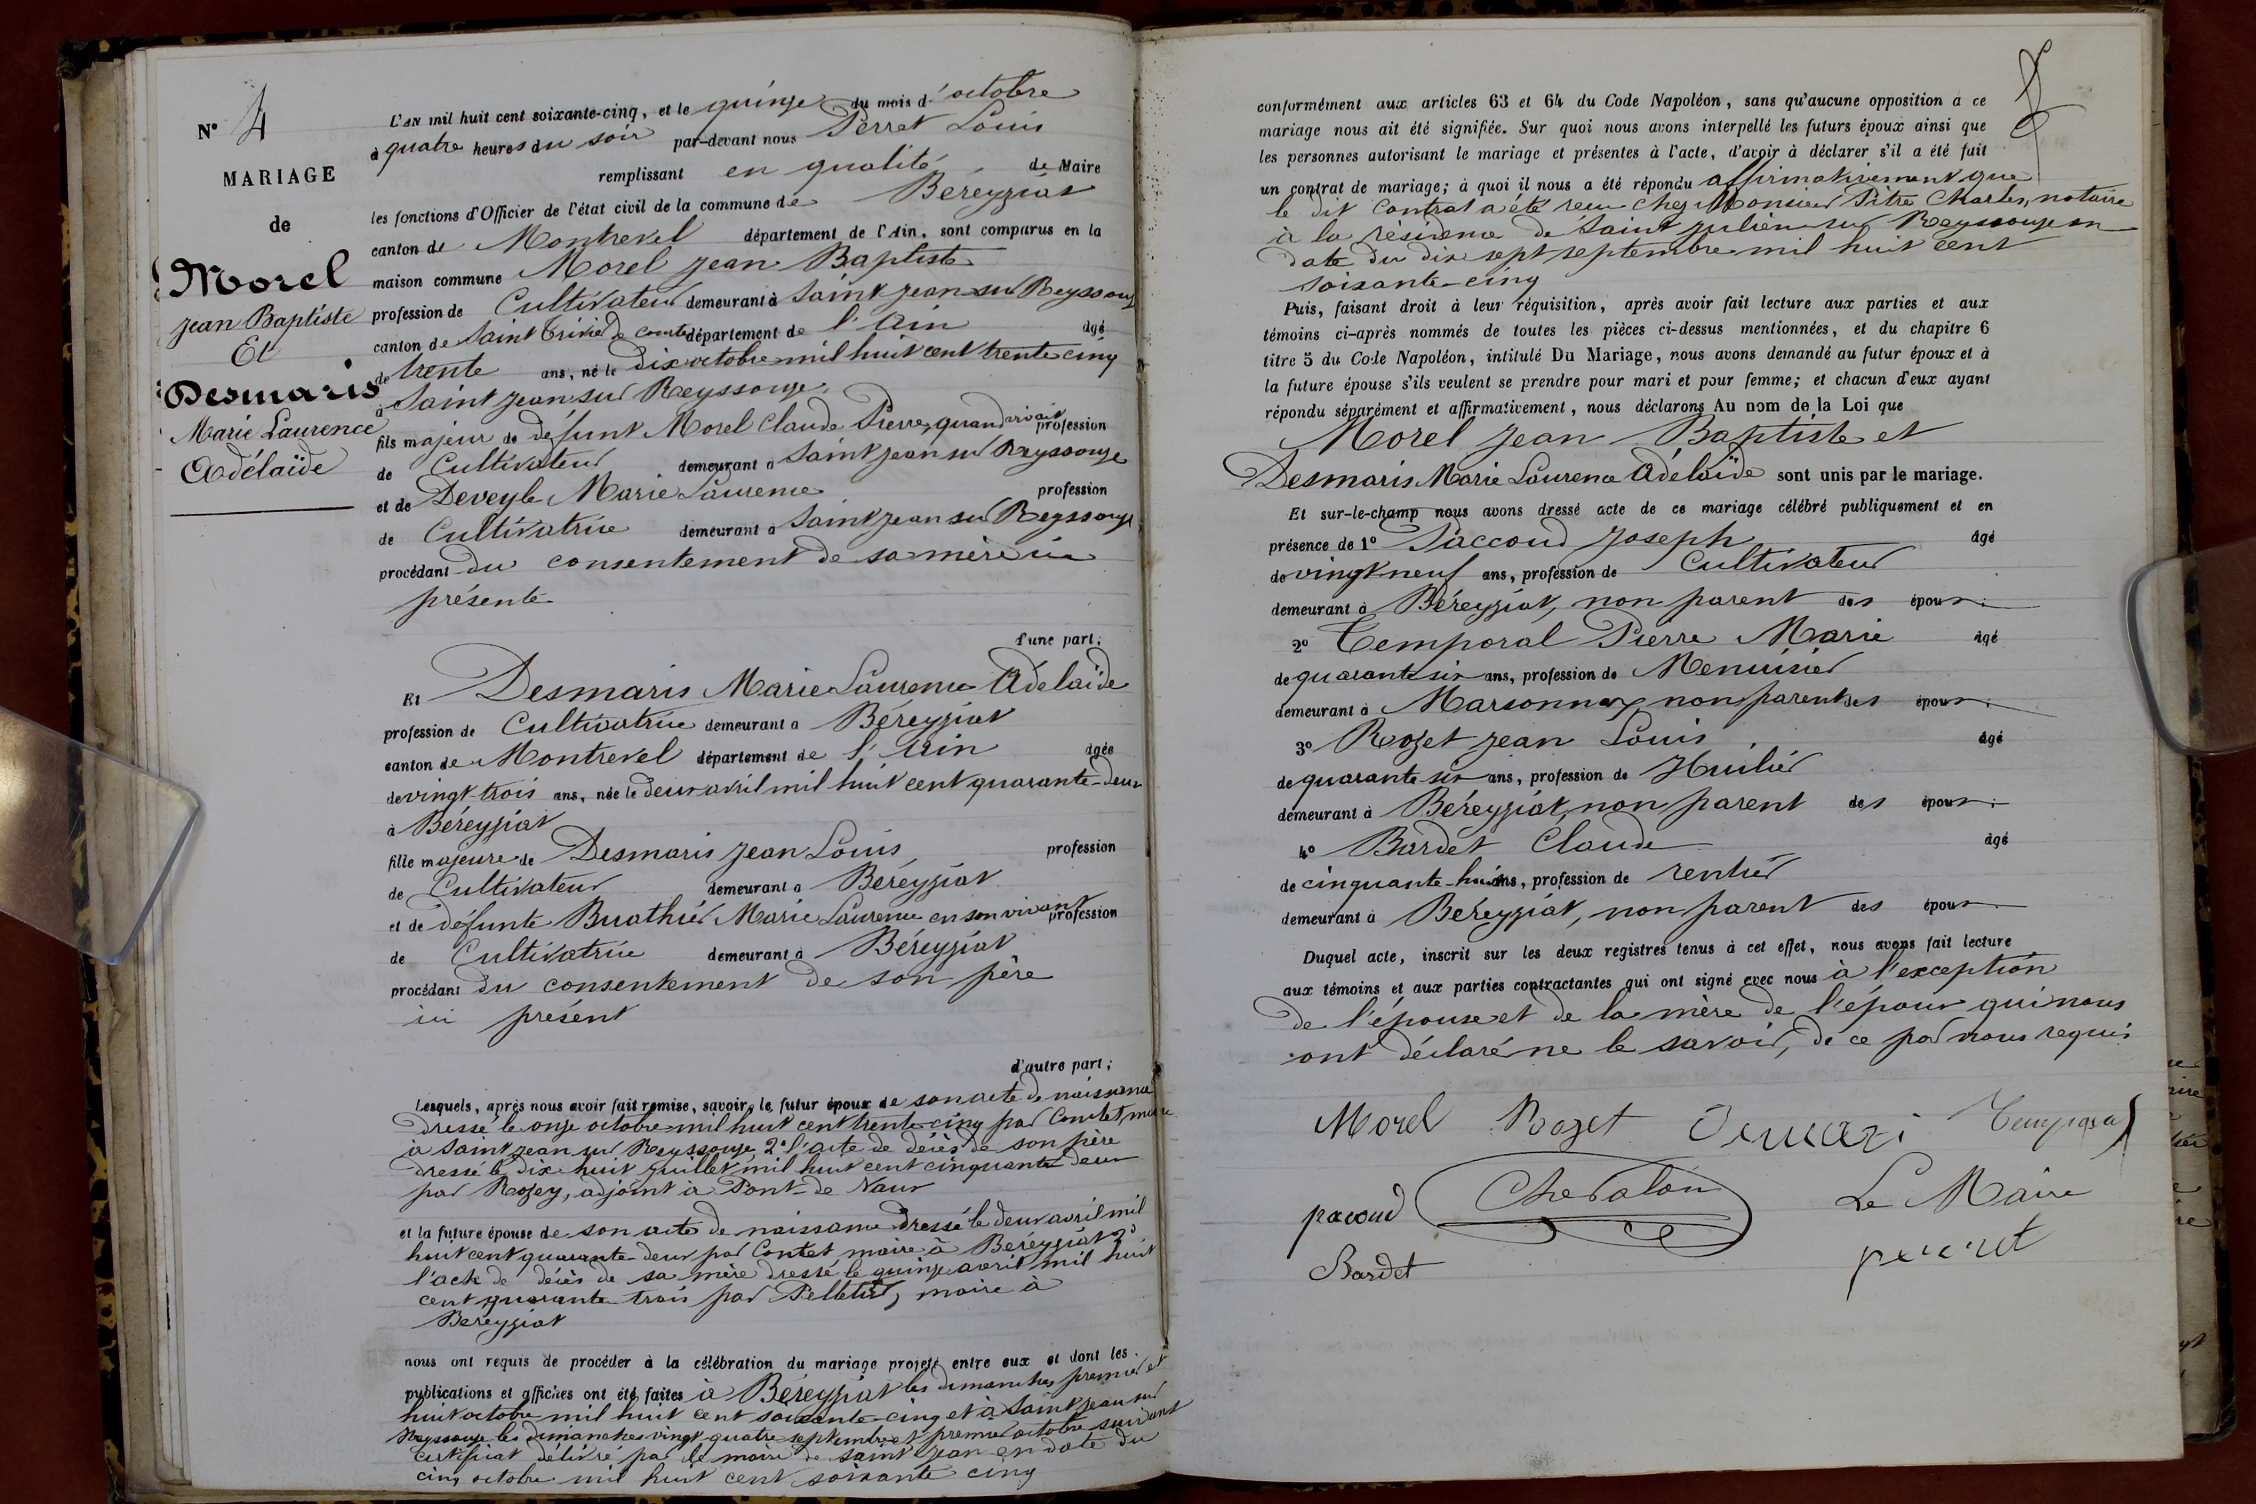 N° 4
MARIAGE
de
Morel
Jean Baptiste
Et
Desmaris
Marie Laurence
Adélaïde
L'AN mil huit cent soixante-cinq, et le quinze du mois d'octobre
à quatre heures du soir par-devant nous Perret Louis
remplissant en qualité de Maire
les fonctions d'Officier de l'état civil de la commune de Béreyziat
canton de Montrevel département de l'Ain, sont comparus en la
maison commune Morel Jean Baptiste
profession de Cultivateur demeurant à Saint Jean sur Reyssouze
canton de Saint Trivier de Courtes département de l'Ain âgé
de trente ans, né le dix octobre mil huit cent trente cinq
à Saint Jean sur Reyssouze
fils majeur de défunt Morel Claude Pierre, quand vivait profession
de Cultivateur demeurant à Saint Jean sur Reyssouze
et de Deveyle Marie Laurence profession
de Cultivatrice demeurant à Saint Jean sur Reyssouze
procédant du consentement de sa mère ici
présente
d'une part;
Et Desmaris Marie Laurence Adélaïde
profession de Cultivatrice demeurant à Béreyziat
canton de Montrevel département de l'Ain âgée
de vingt trois ans, née le deux avril mil huit cent quarante-deux
à Béreyziat
fille majeure de Desmaris Jean Louis profession
de Cultivateur demeurant à Béreyziat
et de défunte Buathier Marie Laurence en son vivant profession
de Cultivatrice demeurant à Béreyziat
procédant du consentement de son père
ici présent
d'autre part;
Lesquels, après nous avoir fait remise, savoir, le futur époux de son acte de naissance
dressé le onze octobre mil huit cent trente-cinq par maire
à Saint Jean sur Reyssouze, 2° l'acte de décès de son père
dressé le dix huit juillet mil huit cent cinquante deux
par Rozey, adjoint à Pont-de Vaux
et la future épouse de son acte de naissance dressé le deux avril mil
huit cent quarante-deux par Contet maire à Béreyziat 2°
l'acte de décès de sa mère dressé le quinze avril mil huit
cent quarante-trois par Pelletier, maire à
Béreyziat
nous ont requis de procéder à la célébration du mariage projeté entre eux et dont les
publications et affiches ont été faites à Béreyziat les dimanches premier et
huit octobre mil huit cent soixante-cinq et à Saint Jean sur
Reyssouze les dimanches vingt quatre septembre et premier octobre suivant
certificat délivré par le maire de Saint Jean en date du
cinq octobre mil huit cent soixante cinq
conformément aux articles 63 et 64 du Code Napoléon, sans qu'aucune opposition à ce
mariage nous ait été signifiée. Sur quoi nous avons interpellé les futurs époux ainsi que
les personnes autorisant le mariage et présentes à l'acte, d'avoir à déclarer s'il a été fait
un contrat de mariage; à quoi il nous a été répondu affirmativement que
le dit contrat a été reçu chez Monsieur Pitre Charles, notaire
à la résidence de Saint Julien sur Reyssouze en
date du dix sept septembre mil huit cent
soixante-cinq
Puis, faisant droit à leur réquisition, après avoir fait lecture aux parties et aux
témoins ci-après nommés de toutes les pièces ci-dessus mentionnées, et du chapitre 6
titre 5 du Code Napoléon, intitulé Du Mariage, nous avons demandé au futur époux et à
la future épouse s'ils veulent se prendre pour mari et pour femme; et chacun d'eux ayant
répondu séparément et affirmativement, nous déclarons Au nom de la Loi que
Morel Jean Baptiste et
Desmaris Marie Laurence Adélaïde sont unis par le mariage.
Et sur-le-champ nous avons dressé acte de ce mariage célébré publiquement et en
présence de 1° Paccoud Joseph âgé
de vingt neuf ans, profession de Cultivateur
demeurant à Béreyziat, non parent des époux.
2° Temporal Pierre Marie âgé
de quarante six ans, profession de Menuisier
demeurant à Marsonnas, non parent des époux.
3° Rozet Jean Louis, âgé
de quarante six ans, profession de Huilier
demeurant à Béreyziat, non parent des époux.
4° Bardet Claude âgé
de cinquante-huit ans, profession de rentier
demeurant à Béreyziat, non parent des époux.
Duquel acte, inscrit sur les deux registres tenus à cet effet, nous avons fait lecture
aux témoins et aux parties contractantes qui ont signé avec nous à l'exception
de l'épouse et de la mère de l'époux qui nous
ont déclaré ne le savoir, de ce par nous requis
Morel Rozet Demari Temporal
pacoud Chevalon Le Maire
Bardet perret